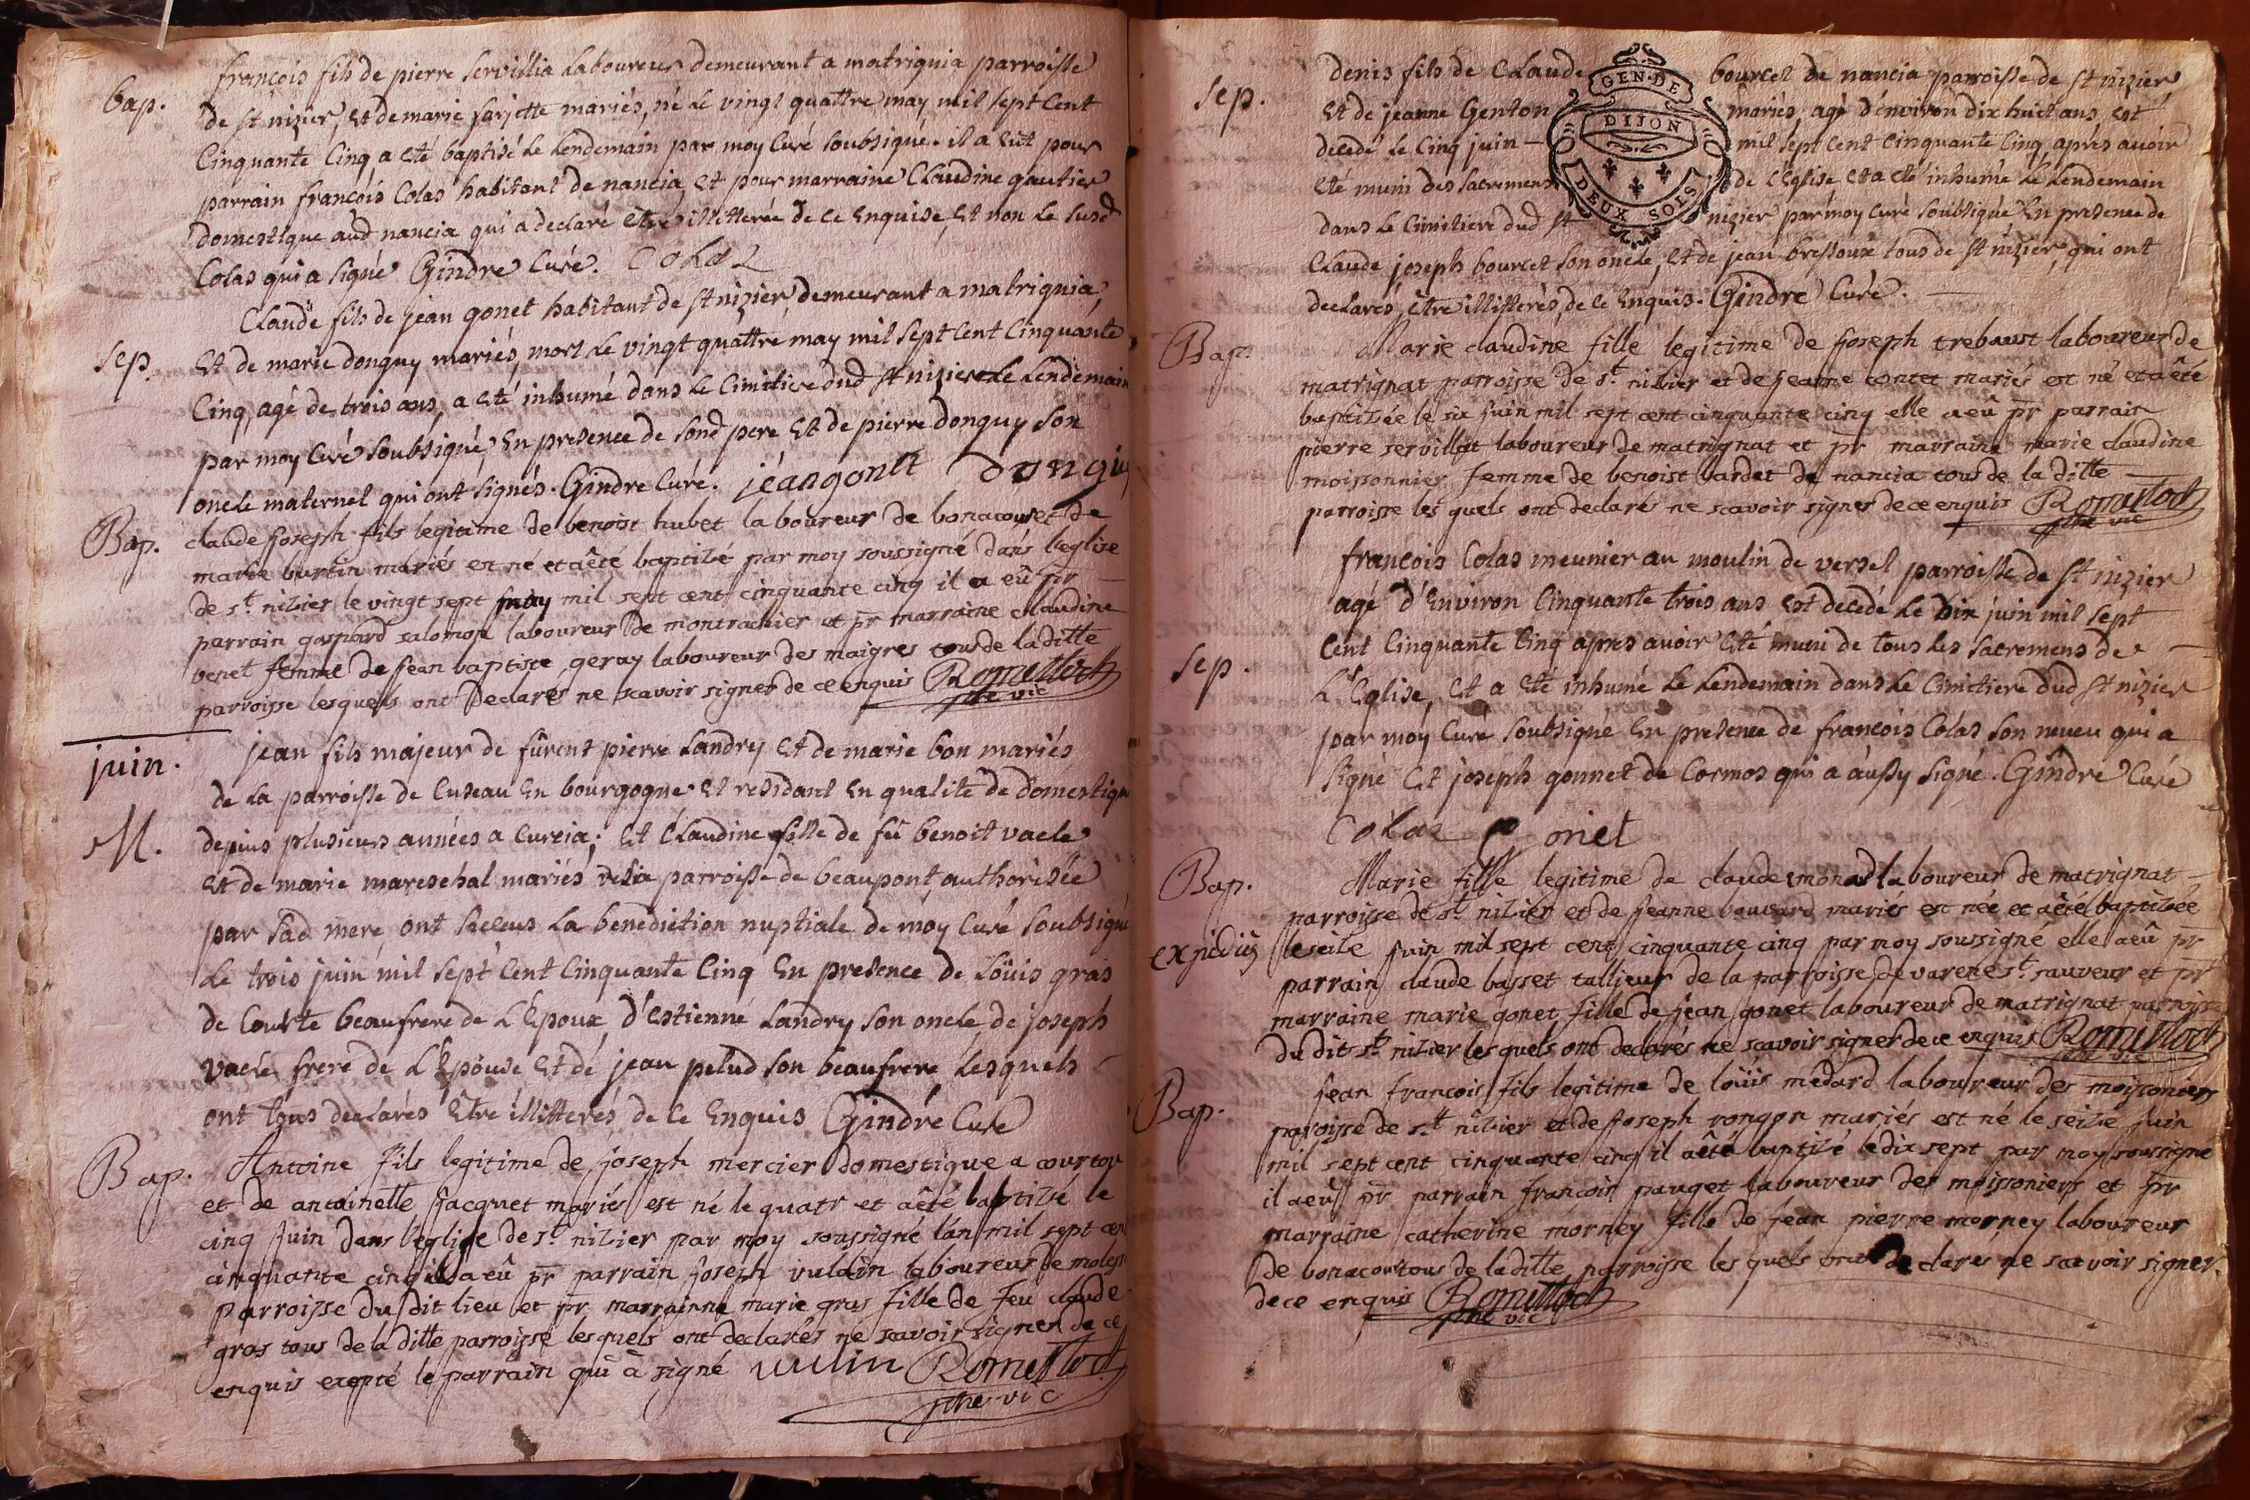 bap.
françois fils de pierre servillia Laboureur demeurant a matrignia parroisse
de st nizier, Et de marie farjette mariés, né Le vingt quattre may mil sept Cent
Cinquante Cinq a Eté baptisé Le Lendemain par moy Curé Soubsigné. il a Eût pour
parrain françois Colas habitant de nancia Et pour marraine Claudine gautier
domestique aud nancia qui a declaré Etre illitterée de Ce Enquise, Et non Le susd
Colas qui a signé Gindre Curé. Colas
sep.
Claude fils de jean gonet habitant de st nizier demeurant a matrignia,
Et de marie donguy mariés, mort Le vingt quattre may mil sept Cent Cinquante
Cinq, agé de trois ans, a Eté inhumé dans Le Cimitiere dud st nizier Le Lendemain
par moy Curé Soubsigné, En presence de sond pere Et de pierre donguy son
oncle maternel qui ont signés. Gindre Curé. jéangonet Donguy
Bap.
claude joseph fils legitime de benoist hubet laboureur de bonacouret de
marie burtin mariés est né et aêté baptizé par moy soussigné dans leglise
de s.t nizier le vingt sept may mil sept cent cinquante cinq il a eû pr
parrain gaspard salomon laboureur de montrachier et pr marraine claudine
venet femme de jean baptiste geray laboureur des maigres tous de la ditte
parroisse lesquels ont Declarés ne scavoir signer de ce enquis Romettod
ptre vic
juin.
M.
jean fils majeur de fû pierre Landry Et de marie bon mariés
de La parroisse de Cuseau En bourgogne Et residant En qualité de domestique
depuis plusieurs années a Curcia; Et Claudine fille de fû benoit vacle
Et de marie mareschal mariés de La parroisse de beaupont authorisée
par sad mere, ont Receus La benediction nuptiale de moy Curé Soubsigné
Le trois juin mil sept Cent Cinquante Cinq En presence de Loüis gras
de Courte beaufrere de L'Epoux, d'Estienne Landry son oncle, de joseph
vacle frere de L'Epouse Et de jean pelud son beaufrere Lesquels
ont tous declarés Etre illitterés de Ce Enquis Gindre Curé
Bap.
Antoine fils legitime de joseph mercier domestique a courtou
et de antoinette jacquet mariés est né le quatr et aêté baptizé le
cinq juin dans leglise de s.t nizier par moy soussigné lan mil sept cen
cinquante cinq il a eû pr parrain joseph vulain laboureur de
parroisse du dit lieu et pr marrainne marie gras fille de feu claude
gras tous de la ditte parroisse lesquels ont declarés ne scavoir signer de ce
enquis exepté le parrain qui à signé vulin Romettod
ptre vic
sep.
denis fils de Claude bourcet de nancia parroisse de st nizier,
Et de jeanne Genton mariés, agé d'environ dix huit ans Est
decedé Le Cinq juin mil sept Cent Cinquante Cinq, aprés avoir
Eté muni des Sacremens de L'Eglise, Et a Eté inhumé Le Lendemain
dans Le Cimitiere dud st nizier par moy Curé Soubsigné En presence de
Claude joseph bourcet son oncle, Et de jean bressoux tous de st nizier, qui ont
declarés Etre illitterés de Ce Enquis. Gindre Curé.
GEN. DE
DIJON
DEUX SOLS
Bap.
Marie claudine fille legitime de joseph trebaut laboureur de
matrignat parroisse de s.t nizier et de jeanne contet mariés est né et aêté
baptizée le six juin mil sept cent cinquante cinq elle a eû pr parrain
pierre servillat laboureur de matrignat et pr marraine marie claudine
moissonnier femme de benoist bardet de nancia tous de la ditte
parroisse les quels ont declarés ne scavoir signer de ce enquis Romettod
ptre vic
sep.
françois Colas meunier au moulin de versel parroisse de st nizier
agé d'Environ Cinquante trois ans Est decedé Le Dix juin mil sept
Cent Cinquante Cinq apres avoir Eté muni de tous Les Sacremens de
L'Eglise, Et a Eté inhumé Le Lendemain dans Le Cimitiere dud st nizier
par moy Curé Soubsigné En presence de françois Colas son neveu qui a
signé Et joseph gonnet de Cormos qui a aussy signé. Gindre Curé
Colas gonet
Bap.
expediés
Marie fille legitime de claude monad laboureur de matrignat
parroisse de s.t nizier et de jeanne bouvard mariés est née et aêté baptizée
le seize juin mil sept cent cinquante cinq par moy soussigné elle aeû pr
parrain claude basset tallieur de la parroisse de varene s.t sauveur et pr
marraine marie gonet fille de jean gonet laboureur de matrignat parroisse
du dit s.t nizier lesquels ont declarés ne scavoir signer de ce enquis Romettod
ptre vic
Bap.
jean francois fils legitime de loüis medard laboureur des moissoniers
paroisse de s.t nizier et de joseph rongon mariés est né le seizé juin
mil sept cent cinquante cinq il aêté baptizé le dix sept par moy soussigné
il aeû pr parrain francois pauget laboureur des moissoniers et pr
marraine catherine morney fille de jean pierre morney laboureur
de bonacour tous de la ditte parroisse les quels ont declarés ne scavoir signer
de ce enquis Romettod
ptre vic